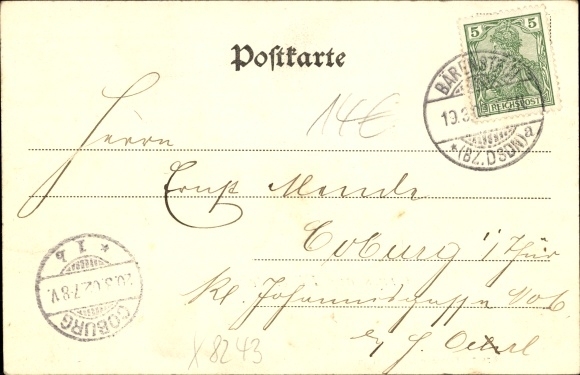 Postkarte
5 5
REICHSPOST
BÄRENSTEIN
19.3.
*(BZ. DSDN)a
14€
Herrn
Ernst Mende
Coburg i/Thür
Kl. Johannisgasse No 6
b/ H. Oertel
COBURG
20.3.02.7-8V.
* 1 b
X 8243